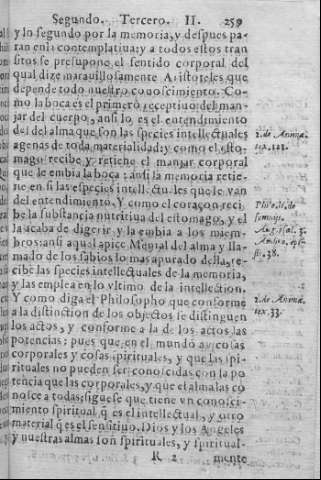 Segundo. Tercero. II. 259
y lo segundo por la memoria, y despues pa-
ran en la contemplatiua: y a todos estos tran
sitos se presupone el sentido corporal del
qual dize marauillosamente Aristoteles que
depende todo nuestro conoscimiento. Co-
mo la boca es el primero receptiuo del man-
jar del cuerpo, ansi lo es el entendimiento
del del alma que son las species intellectuales
agenas de toda materialidad: y como el esto-
mago recibe y retiene el manjar corporal
que le embia la boca: ansi la memoria retie-
ne en si las especies intellectuales que le van
del entendimiento. Y como el coraçon reci-
be la substancia nutritiua del estomago, y el
la acaba de digerir y la embia a los miem-
bros: ansi aquel apice Mental del alma y lla-
mado de los sabios lo mas apurado della, re-
cibe las species intellectuales de la memoria,
y las emplea en lo vltimo de la intellection.
Y como diga el Philosopho que conforme
a la distinction de los objectos se distinguen
los actos, y conforme a la de los actos las
potencias: pues que en el mundo ay cosas
corporales y cosas spirituales, y que las spi-
rituales no pueden ser conoscidas con la po
tencia que las corporales, y que el alma las co
nosce a todas; siguese que tiene vn conosci-
miento spiritual q̃ es el intellectual, y otro
material q̃ es el sensitiuo. Dios y los Angeles
y nuestras almas son spirituales, y spiritual-
R 2 mente
3. de Anima
tex. 33.